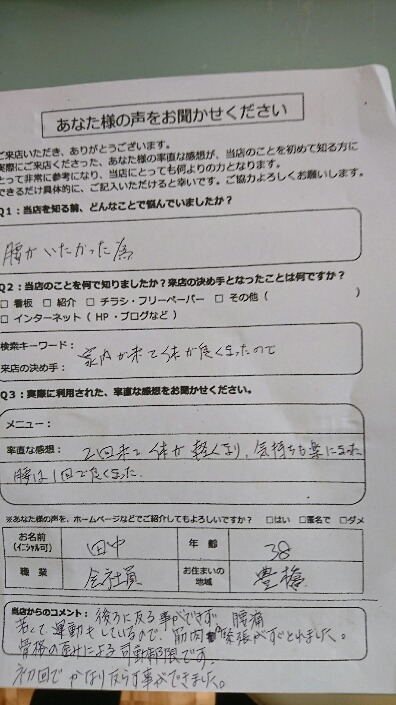 あなた様の声をお聞かせください
ご来店いただき、ありがとうございます。
実際にご来店くださった、あなた様の率直な感想が、当店のことを初めて知る方に
とって非常に参考になり、当店にとっても何よりの力となります。
できるだけ具体的に、ご記入いただけると幸いです。ご協力よろしくお願いします。
Q1：当店を知る前、どんなことで悩んでいましたか？
腰がいたかった為
Q2：当店のことを何で知りましたか？来店の決め手となったことは何ですか？
□ 看板 □ 紹介 □ チラシ・フリーペーパー □ その他（ ）
□ インターネット（ HP・ブログなど ）
検索キーワード：
来店の決め手： 家内が来て体が良くなったので
Q3：実際に利用された、率直な感想をお聞かせください。
メニュー：
率直な感想： 2回来て体が軽くなり、気持ちも楽になった
腰は1回で良くなった.
※あなた様の声を、ホームページなどでご紹介してもよろしいですか？ □はい □匿名で □ダメ
お名前（イニシャル可） 田中 年 齢 38
職 業 会社員 お住まいの地域 豊橋
当店からのコメント： 後ろに反る事ができず 腰痛
若くて運動もしているので、筋肉の緊張がすぐとれました。
骨格の歪みによる可動制限です。
初回でかなり反らす事ができました。